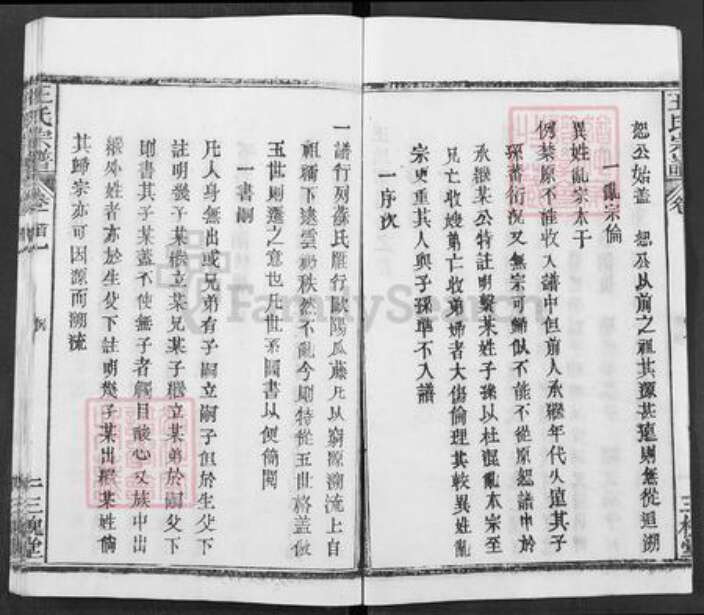 恕公始蓋　恕公以前之祖其源甚遠則無從追溯
一亂宗倫
異姓亂宗本干
例禁原不准收入譜中但前人承繼年代久遠其子
孫蕃衍況又無宗可歸似不能不從原恕譜中於
承繼某公特註明繫某姓子孫以杜混亂本宗至
兄亡收嫂弟亡收弟婦者大傷倫理其較異姓亂
宗更重其人與子孫華不入譜
一序次
一譜行列蘇氏雁行歐陽瓜藤凡以窮源溯流上自
祖禰下逮雲礽秩然不亂今則特從五世格蓋倣
五世則遷之意也凡世系圖書以便簡閱
一書嗣
凡人身無出或兄弟有子嗣立嗣子但於生父下
註明幾子某繼立某兄某子繼立某弟於嗣父下
則書其子某蓋不使無子者觸目酸心又族中出
繼外姓者亦於生父下註明幾子某出繼某姓倘
其歸宗亦可因源而溯流
王氏宗譜
卷首
二
三槐堂
王氏宗譜
卷
三槐堂
FamilySearch